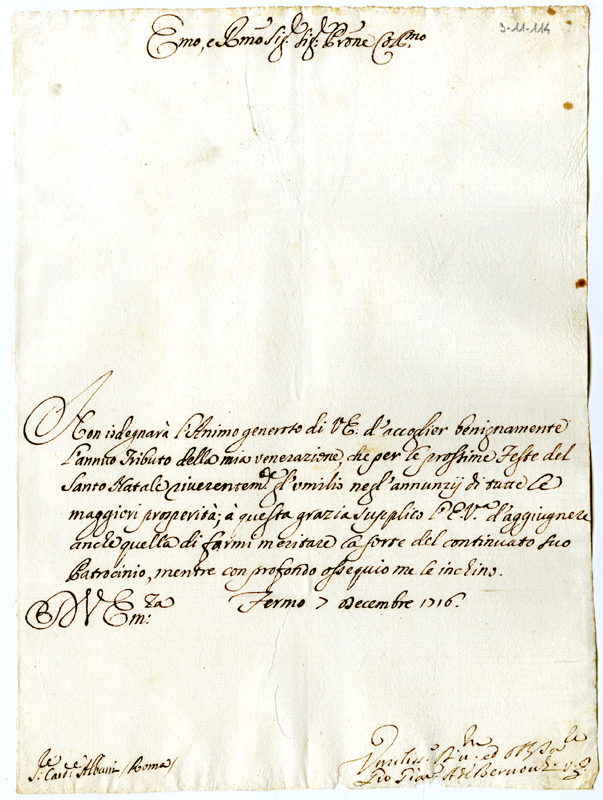 3-11-114
Emo, e Rmo Sig.r Sig.r Prone Col.mo
Non isdegnarà l'Animo generoso di V.E. d'accoglier benignamente
l'annuo Tributo della mia venerazione, che per le prossime Feste del
Santo Natale riverentem.te l'umilio negl'annunzij di tutte le
maggiori properità; à questa grazia supplico l'E.V.a d'aggiugnere
anche quella di farmi meritare la sorte del continuato suo
Patrocinio, mentre con profondo ossequio me le inchino.
D V Em:za Fermo 7 Decembre 1716.
S.r Card.le Albani /Roma/
Umiliss.o
Gio